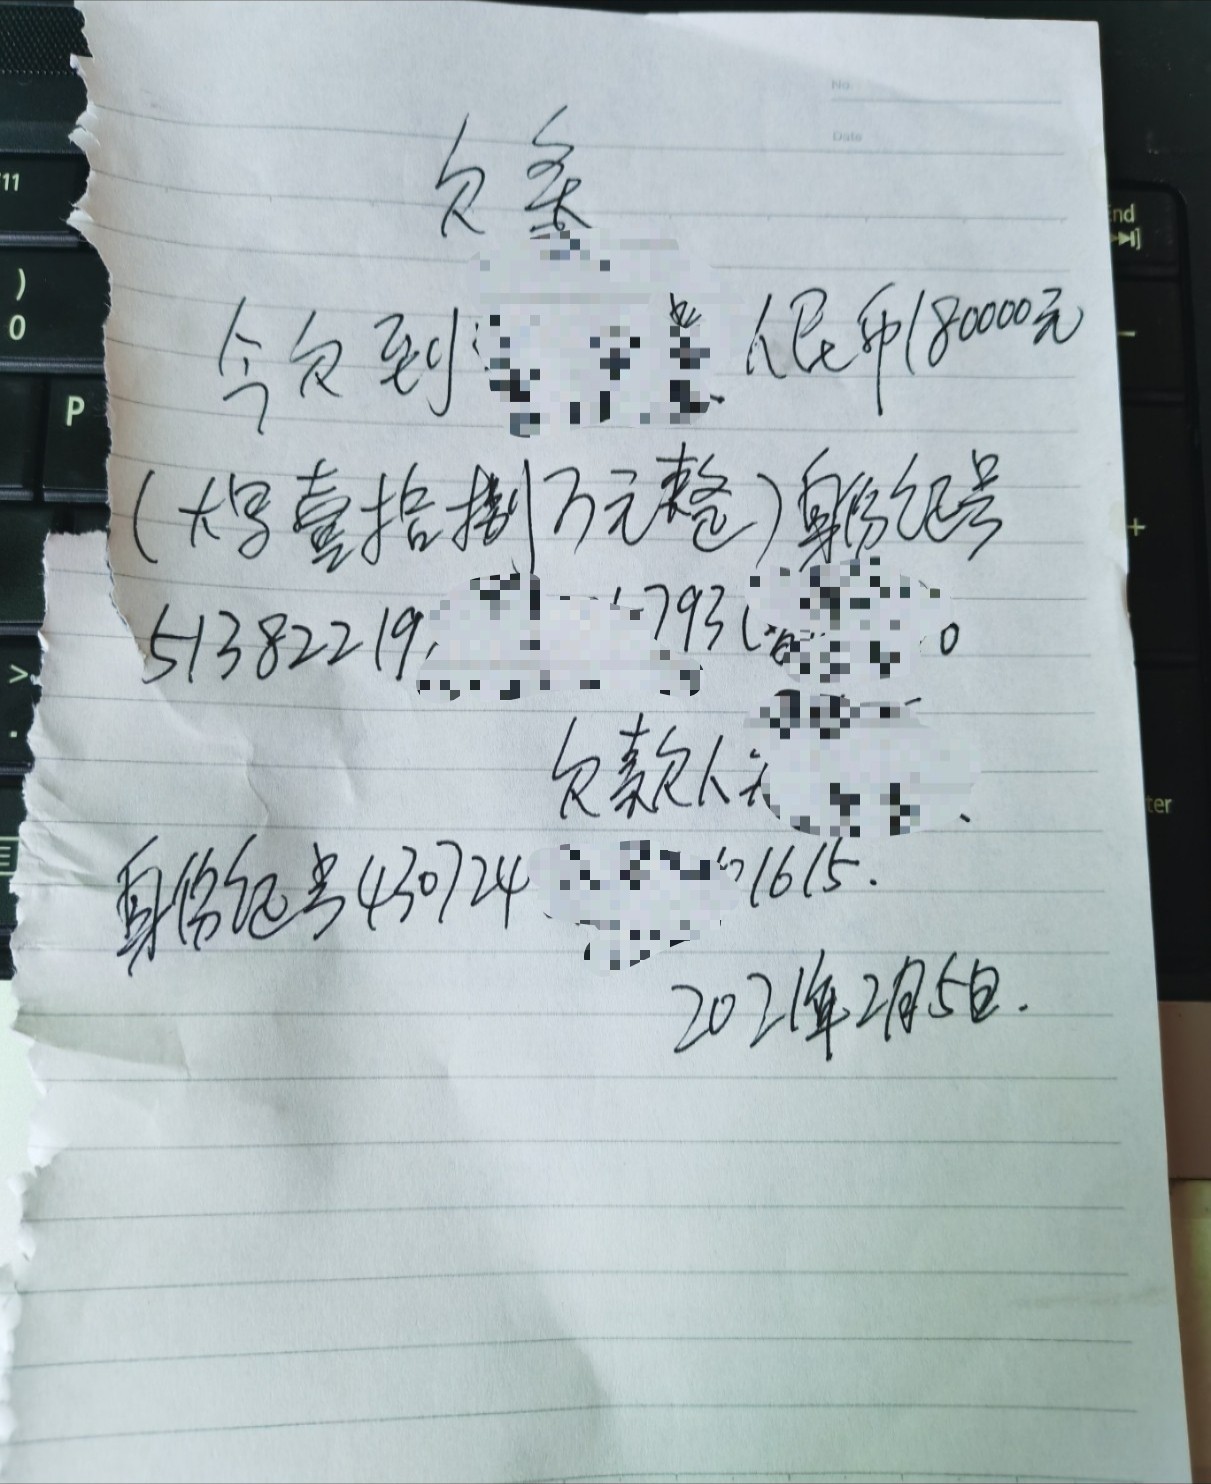 No.
Date
欠条
今欠到 人民币180000元
(大写壹拾捌万元整)身份证号
51382219 793 0
欠款人
身份证号430724 1615.
2021年2月5日.
F11
)
0
P
>
.
End
-
+